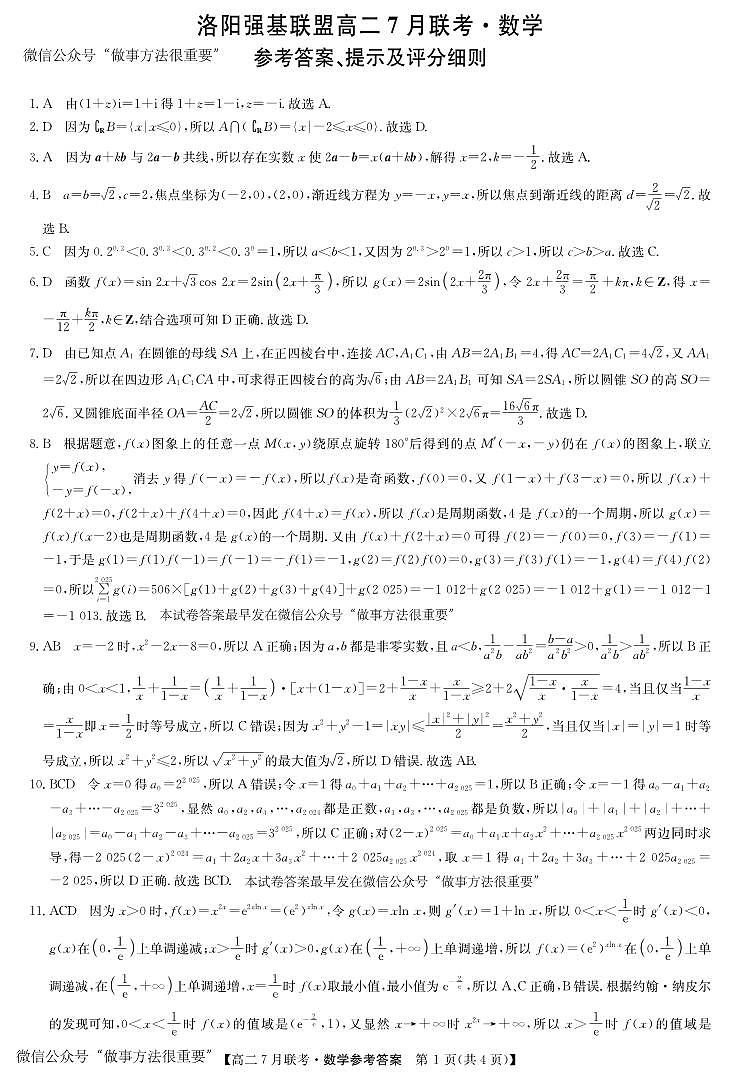 洛阳强基联盟高二7月联考·数学
微信公众号“做事方法很重要”
参考答案、提示及评分细则
1. A 由(1+z)i=1+i得1+z=1−i,z=−i.故选A.
2. D 因为∁RB={x|x≤0},所以A∩(∁RB)={x|−2≤x≤0}.故选D.
3. A 因为a+kb与2a−b共线,所以存在实数x使2a−b=x(a+kb),解得x=2,k=−1/2.故选A.
4. B a=b=√2,c=2,焦点坐标为(−2,0),(2,0),渐近线方程为y=−x,y=x,所以焦点到渐近线的距离d=2/√2=√2.故
选B.
5. C 因为0.2^0.3<0.3^0.3<0.3^0.2<0.3^0=1,所以a<b<1,又因为2^0.3>2^0=1,所以c>1,所以c>b>a.故选C.
6. D 函数f(x)=sin 2x+√3cos 2x=2sin(2x+π/3),所以g(x)=2sin(2x+2π/3),令2x+2π/3=π/2+kπ,k∈Z,得x=
−π/12+kπ/2,k∈Z,结合选项可知D正确.故选D.
7. D 由已知点A₁在圆锥的母线SA上,在正四棱台中,连接AC,A₁C₁,由AB=2A₁B₁=4,得AC=2A₁C₁=4√2,又AA₁
=2√2,所以在四边形A₁C₁CA中,可求得正四棱台的高为√6;由AB=2A₁B₁可知SA=2SA₁,所以圆锥SO的高SO=
2√6.又圆锥底面半径OA=AC/2=2√2,所以圆锥SO的体积为1/3(2√2)²×2√6π=16√6π/3.故选D.
8. B 根据题意,f(x)图象上的任意一点M(x,y)绕原点旋转180°后得到的点M′(−x,−y)仍在f(x)的图象上,联立
{y=f(x), −y=f(−x), 消去y得f(−x)=−f(x),所以f(x)是奇函数,f(0)=0,又f(1−x)+f(3−x)=0,所以f(x)+
f(2+x)=0,f(2+x)+f(4+x)=0,因此f(4+x)=f(x),所以f(x)是周期函数,4是f(x)的一个周期,所以g(x)=
f(x)f(x−2)也是周期函数,4是g(x)的一个周期.又由f(x)+f(2+x)=0可得f(2)=−f(0)=0,f(3)=−f(1)=
−1,于是g(1)=f(1)f(−1)=f(−1)=−f(1)=−1,g(2)=f(2)f(0)=0,g(3)=f(3)f(1)=−1,g(4)=f(4)f(2)
=0,所以∑(i=1→2 025)g(i)=506×[g(1)+g(2)+g(3)+g(4)]+g(2 025)=−1 012+g(2 025)=−1 012+g(1)=−1 012−1
=−1 013.故选B. 本试卷答案最早发在微信公众号“做事方法很重要”
9. AB x=−2时,x²−2x−8=0,所以A正确;因为a,b都是非零实数,且a<b,1/(a²b)−1/(ab²)=(b−a)/(a²b²)>0,1/(a²b)>1/(ab²),所以B正
确;由0<x<1,1/x+1/(1−x)=(1/x+1/(1−x))·[x+(1−x)]=2+(1−x)/x+x/(1−x)≥2+2√((1−x)/x·x/(1−x))=4,当且仅当(1−x)/x
=x/(1−x)即x=1/2时等号成立,所以C错误;因为x²+y²−1=|xy|≤(|x|²+|y|²)/2=(x²+y²)/2,当且仅当|x|=|y|=1时等
号成立,所以x²+y²≤2,所以√(x²+y²)的最大值为√2,所以D错误.故选AB.
10. BCD 令x=0得a₀=2^2 025,所以A错误;令x=1得a₀+a₁+a₂+…+a₂ ₀₂₅=1,所以B正确;令x=−1得a₀−a₁+a₂
−a₃+…−a₂ ₀₂₅=3^2 025,显然a₀,a₂,a₄,…,a₂ ₀₂₄都是正数,a₁,a₃,…,a₂ ₀₂₅都是负数,所以|a₀|+|a₁|+|a₂|+…+
|a₂ ₀₂₅|=a₀−a₁+a₂−a₃+…−a₂ ₀₂₅=3^2 025,所以C正确;对(2−x)^2 025=a₀+a₁x+a₂x²+…+a₂ ₀₂₅x^2 025两边同时求
导,得−2 025(2−x)^2 024=a₁+2a₂x+3a₃x²+…+2 025a₂ ₀₂₅x^2 024,取x=1得a₁+2a₂+3a₃+…+2 025a₂ ₀₂₅=
−2 025,所以D正确.故选BCD. 本试卷答案最早发在微信公众号“做事方法很重要”
11. ACD 因为x>0时,f(x)=x^(2x)=e^(2xln x)=(e²)^(xln x),令g(x)=xln x,则g′(x)=1+ln x,所以0<x<1/e时g′(x)<0,
g(x)在(0,1/e)上单调递减;x>1/e时g′(x)>0,g(x)在(1/e,+∞)上单调递增,所以f(x)=(e²)^(xln x)在(0,1/e)上单
调递减,在(1/e,+∞)上单调递增,x=1/e时f(x)取最小值,最小值为e^(−2/e),所以A、C正确,B错误.根据约翰·纳皮尔
的发现可知,0<x<1/e时f(x)的值域是(e^(−2/e),1),又显然x→+∞时x^(2x)→+∞,所以x>1/e时f(x)的值域是
微信公众号“做事方法很重要” 【高二7月联考·数学参考答案 第1页(共4页)】